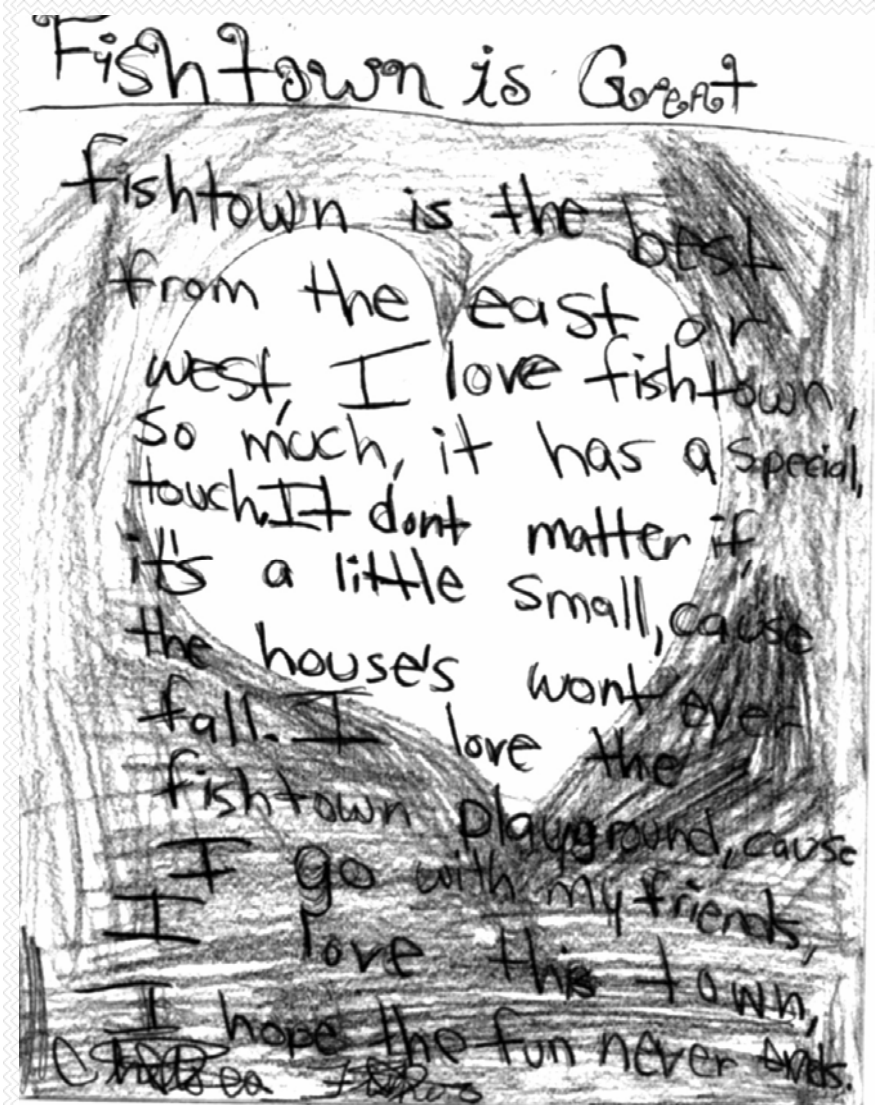 Fishtown is Great
fishtown is the best
from the east or
west, I love fishtown,
so much, it has a special,
touch. It dont matter if,
it's a little small, cause
the house's wont ever
fall. I love the
fishtown playground, cause
I go with my friends,
I love this town,
I hope the fun never ends.
Chelsea